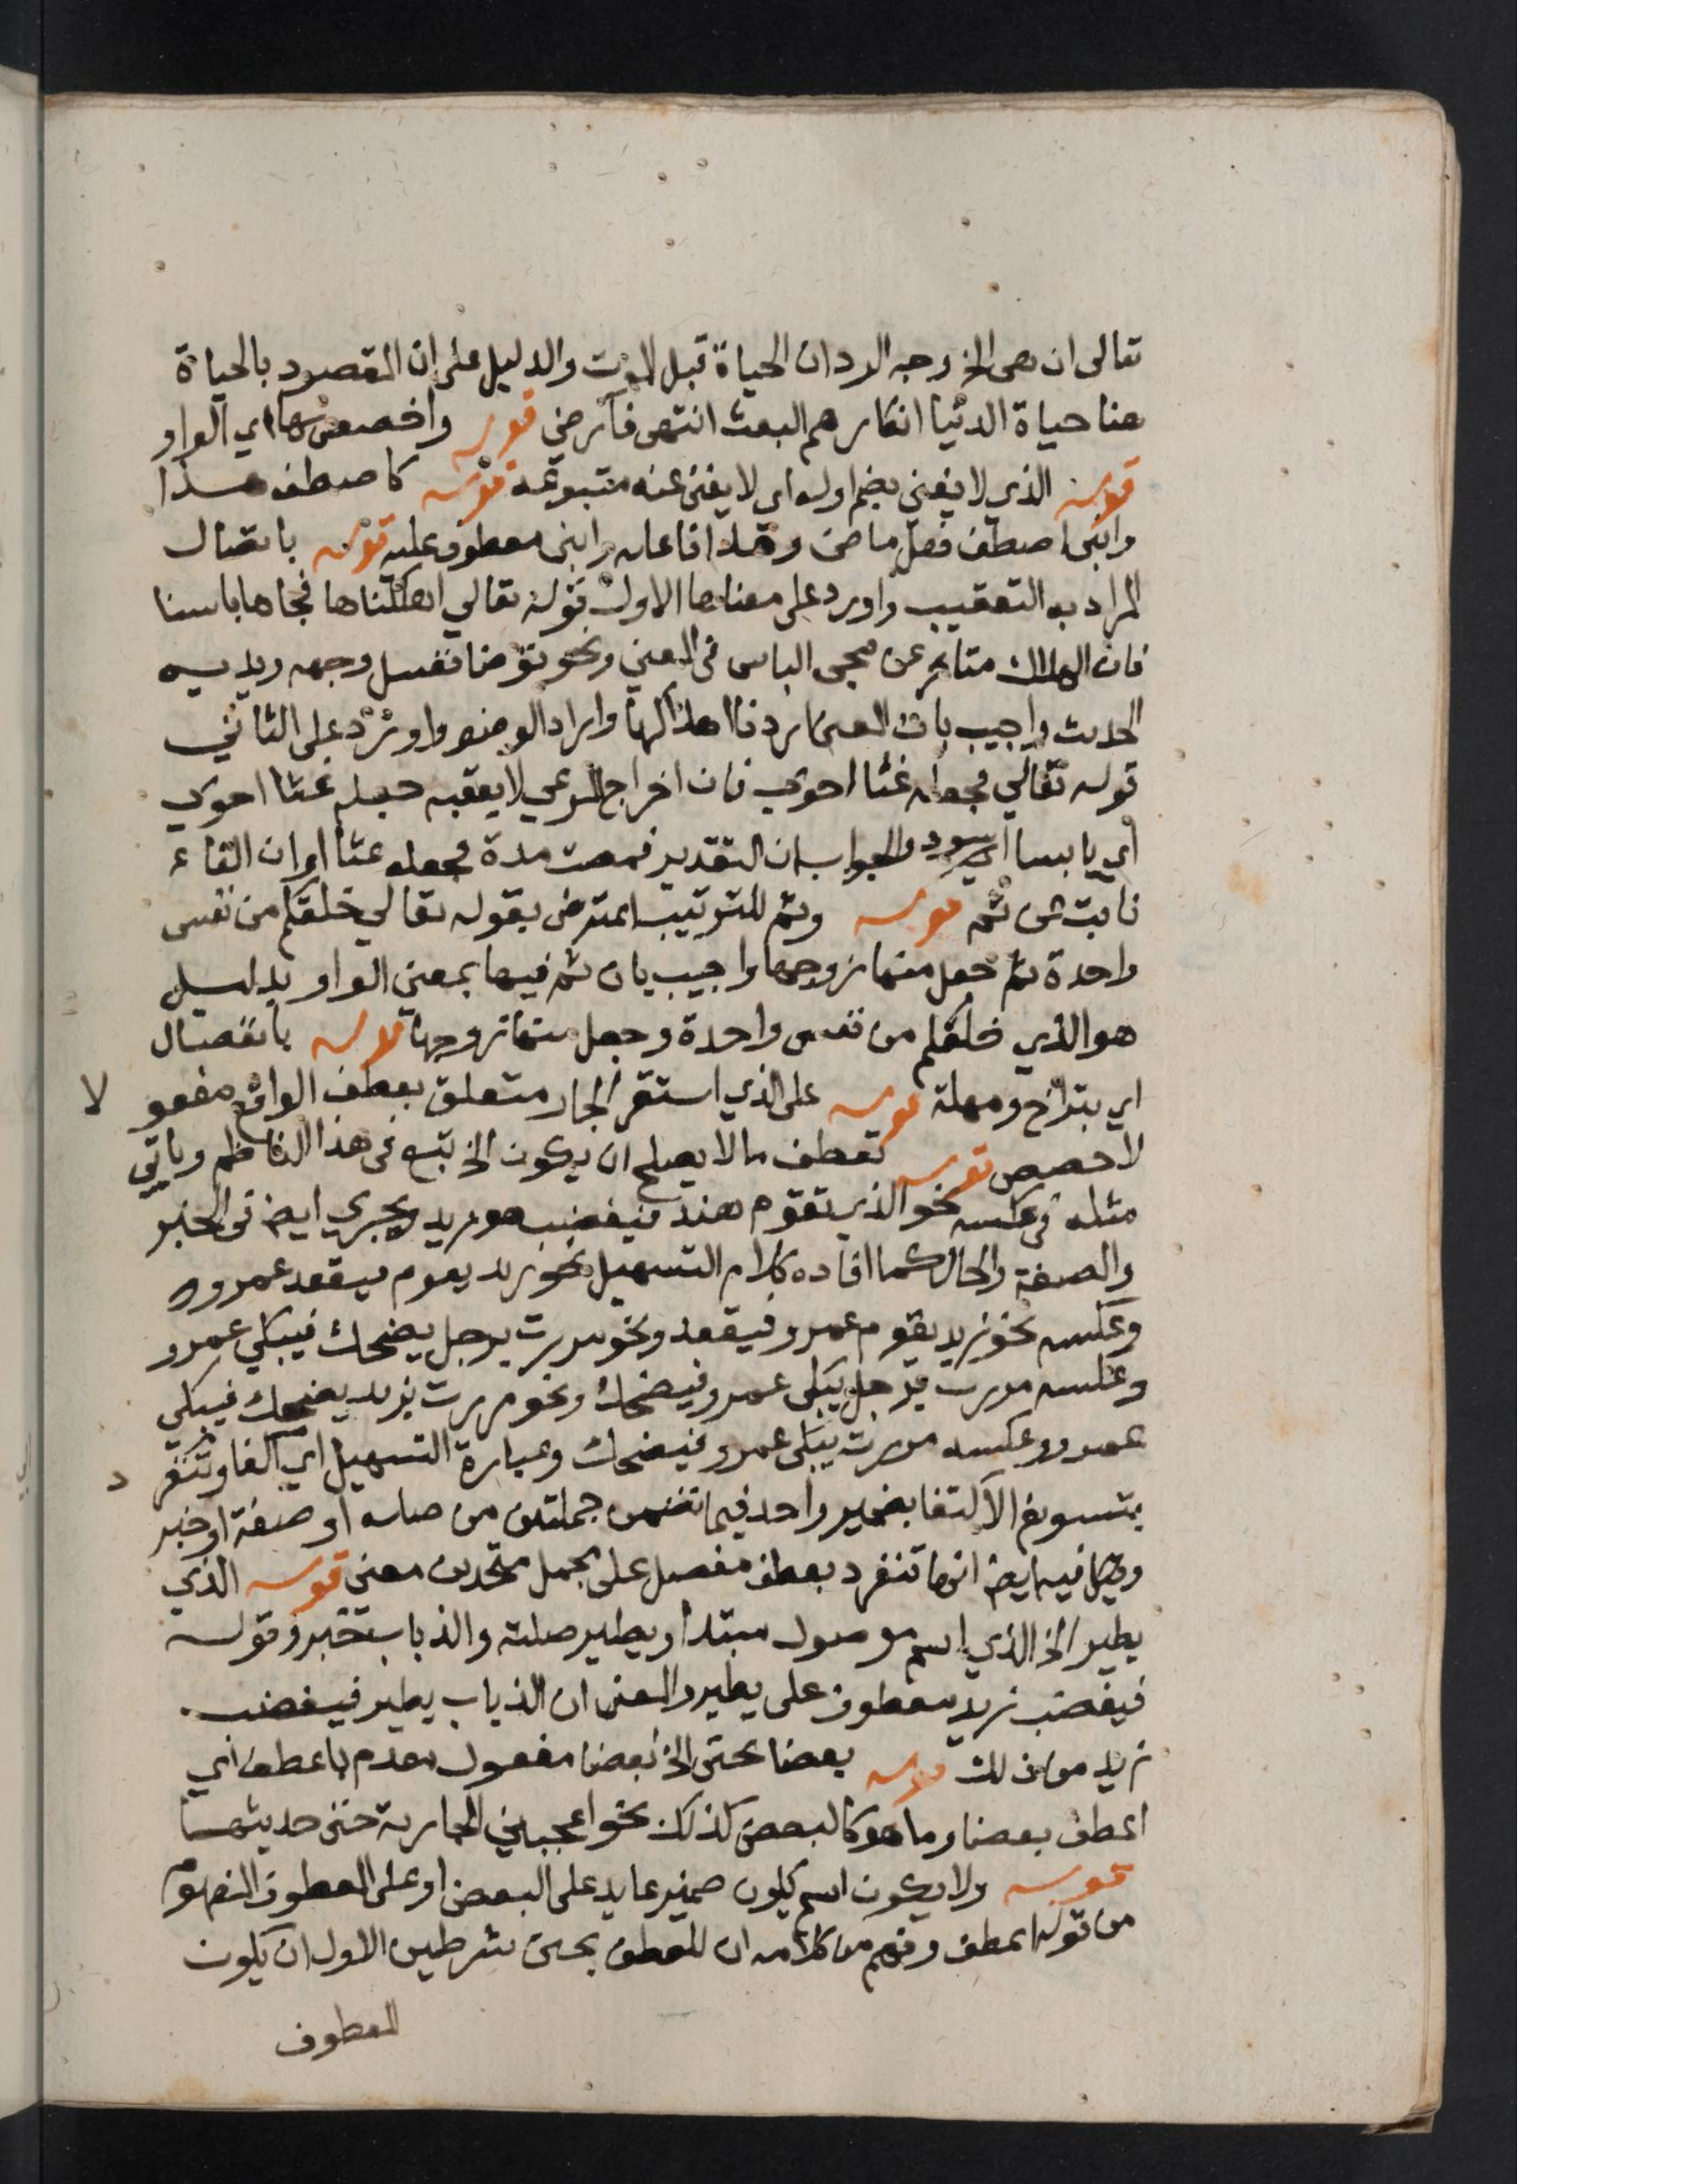 تعالى ان هى الخ وجه الرد ان الحياة قبل الموت والدليل على ان المقصود بالحياة
هنا حياة الدنيا انكارهم البعث انتهى فارضي قوله واخصص بها اي الواو
قوله الذي لا يغني بضم اوله اي لا يغنى عنه متبوعه قوله كاصطف هذا
وابنى اصطف فعل ماض وهذا فاعله وابنى معطوف عليه قوله باتصال
المراد به التعقيب واورد على معناها الاول قوله تعالي اهلكناها فجاها باسنا
فان الهلاك متاخر عن مجى الباس فى المعني ونحو توضا فغسل وجهه ويديه
الحديث واجيب بان المعنى اردنا اهلاكها واراد الوضو واورد على الثاني
قوله تعالي فجعله غثا احوي فان اخراج المرعي لا يعقبه جعله غثا احوي
اي يابسا اسود والجواب ان التقدير فمضت مدة فجعله غثا او ان الفاء
نابت عن ثم قوله وثم للترتيب اعترض بقوله تعالي خلقكم من نفس
واحدة ثم جعل منها زوجها واجيب بان ثم فيها بمعني الواو بدليل
هو الذي خلقكم من نفس واحدة وجعل منها زوجها قوله بانفصال
اي بتراخ ومهلة قوله على الذي استقر الجار متعلق بعطف الواقع مفعو لا
لاخصص قوله تعطف ما لا يصلح ان يكون الخ تبع فى هذا الناظم وياتي
مثله فى عكسه نحو الذي تقوم هند فيغضب هو زيد ويجري ايض فى الخبر
والصفة والحال كما افاده كلام التسهيل نحو زيد يقوم فيقعد عمرو
وعكسه نحو زيد يقوم عمرو فيقعد ونحو مررت برجل يضحك فيبكي عمرو
وعكسه مررت برجل يبكى عمرو فيضحك ونحو مررت بزيد يضحك فيبكي
عمرو وعكسه مررت يبكى عمرو فيضحك وعبارة التسهيل اي الفا وتنفر د
بتسويغ الاكتفا بضمير واحد فيما تضمن جملتين من صله او صفة او خبر
وقيل فيه ايض انها تنفرد بعطف مفصل على مجمل متحدين معني قوله الذي
يطير الخ الذي اسم موصول مبتدا ويطير صلته والذباب خبر وقوله
فيغضب زيد معطوف على يطير والمعنى ان الذباب يطير فيغضب
زيد من ذلك قوله بعضا بحتى الخ بعضا مفعول مقدم باعطف اي
اعطف بعضا وما هو كالبعض كذلك نحو اعجبتني الجارية حتى حديثها
قوله ولا يكون اسم يكون ضمير عايد على البعض او على المعطوف المفهوم
من قوله اعطف وفهم من كلامه ان للعطف بحتى شرطين الاول ان يكون
المعطوف